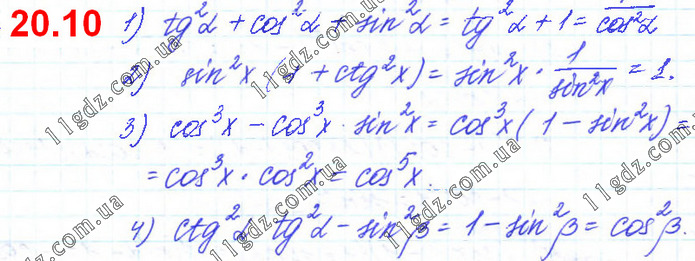 20.10 1) tg²α + cos²α + sin²α = tg²α + 1 = 1/cos²α
2) sin²x · (1 + ctg²x) = sin²x · 1/sin²x = 1.
3) cos³x − cos³x · sin²x = cos³x (1 − sin²x) =
= cos³x · cos²x = cos⁵x.
4) ctg²α · tg²α − sin²β = 1 − sin²β = cos²β.
11gdz.com.ua
11gdz.com.ua
11gdz.com.ua
11gdz.com.ua
11gdz.com.ua